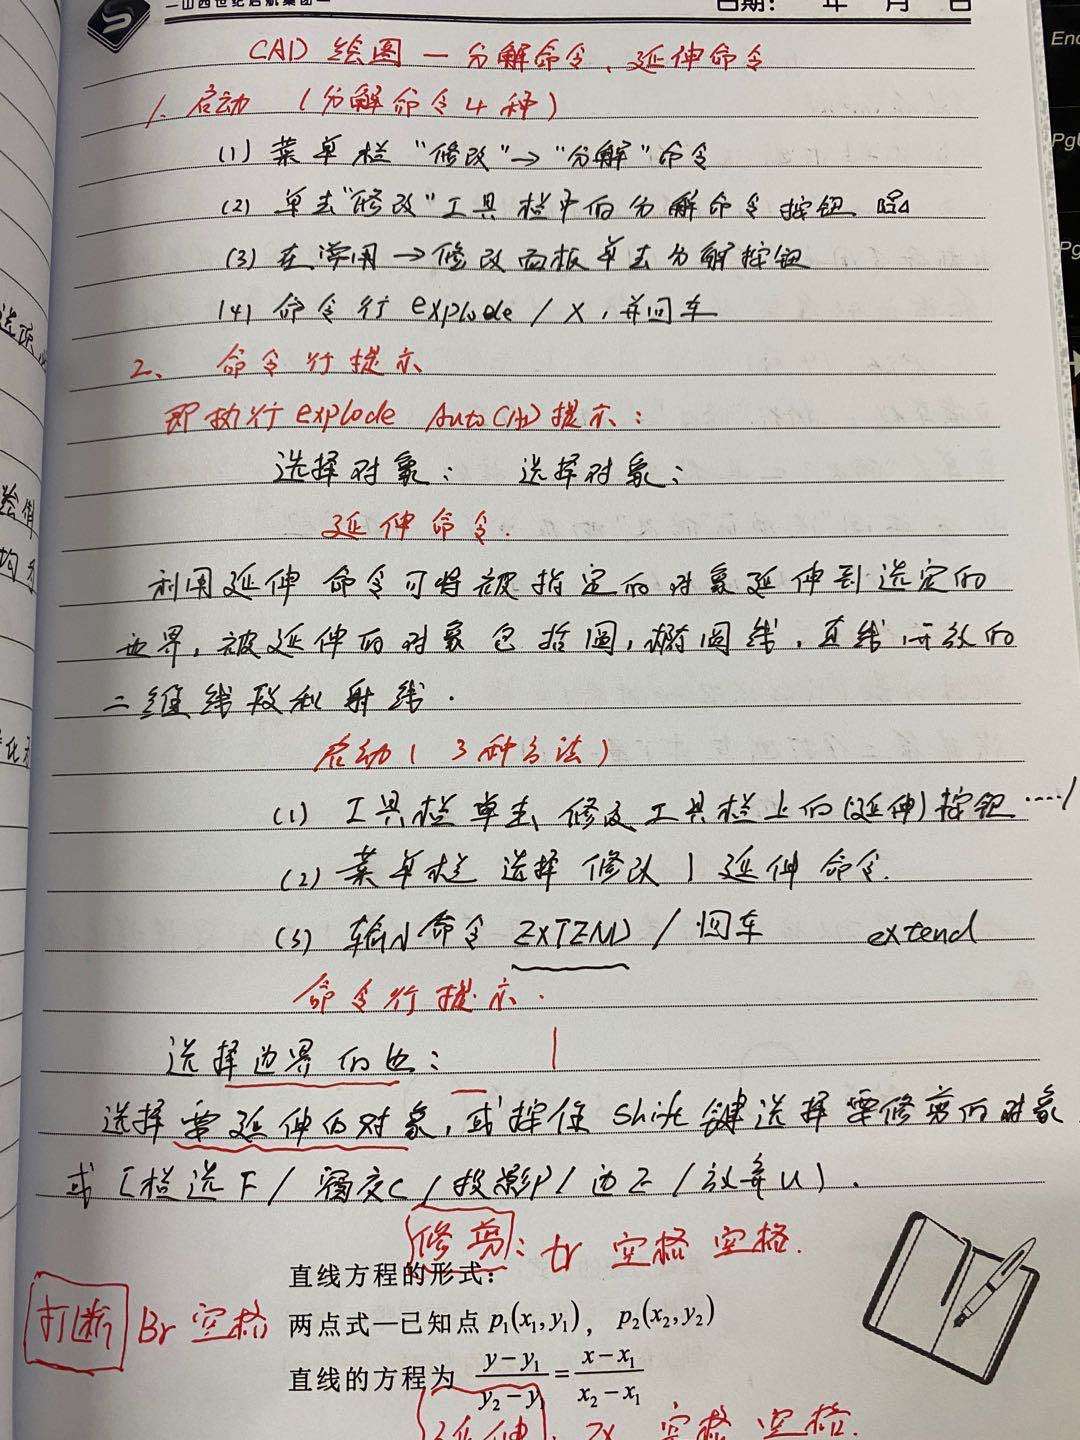 山西世纪启航集团
日期： 年 月 日
CAD 绘图 — 分解命令、延伸命令
1. 启动 (分解命令4种)
(1) 菜单栏 "修改" → "分解" 命令
(2) 单击 "修改" 工具栏中的分解命令按钮
(3) 在常用 → 修改面板单击分解按钮
(4) 命令行 explode / X, 并回车
2、 命令行提示
即执行 explode AutoCAD 提示：
选择对象： 选择对象；
延伸命令.
利用延伸 命令可将被指定的对象延伸到选定的
边界, 被延伸的对象包括圆, 椭圆线, 直线 开放的
二维线段和射线.
启动 ( 3种方法)
(1) 工具栏单击 修改工具栏上的 (延伸) 按钮 ·····/
(2) 菜单栏 选择 修改 | 延伸 命令.
(3) 输入命令 EXTEND / 回车 extend
命令行提示.
选择边界的边：
选择要延伸的对象, 或按住 Shift 键选择要修剪的对象
或 [栏选F / 窗交C / 投影P / 边E / 放弃U).
修剪: tr 空格 空格.
直线方程的形式：
打断 Br 空格
两点式—已知点 p₁(x₁,y₁), p₂(x₂,y₂)
直线的方程为 (y−y₁)/(y₂−y₁) = (x−x₁)/(x₂−x₁)
延伸: Ex 空格 空格.
End